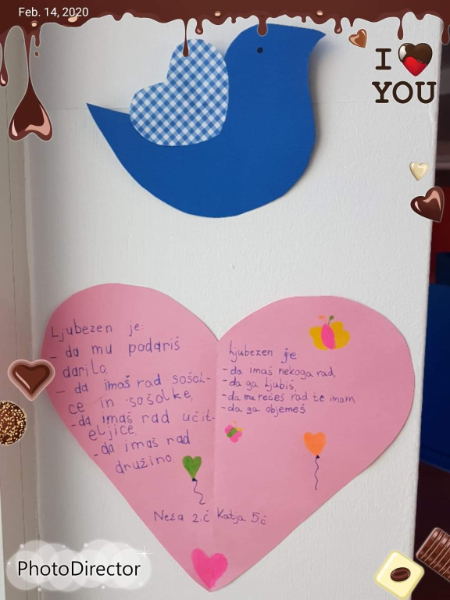 Feb. 14, 2020
I
YOU
Ljubezen je:
- da mu podariš
darilo,
- da imaš rad sošol-
ce in sošolke,
- da imaš rad učit-
eljice,
- da imaš rad
družino
Ljubezen je
- da imaš nekoga rad
- da ga ljubiš,
- da mu rečeš rad te imam
- da ga objemeš
Neža 2.č Katja 5č
PhotoDirector